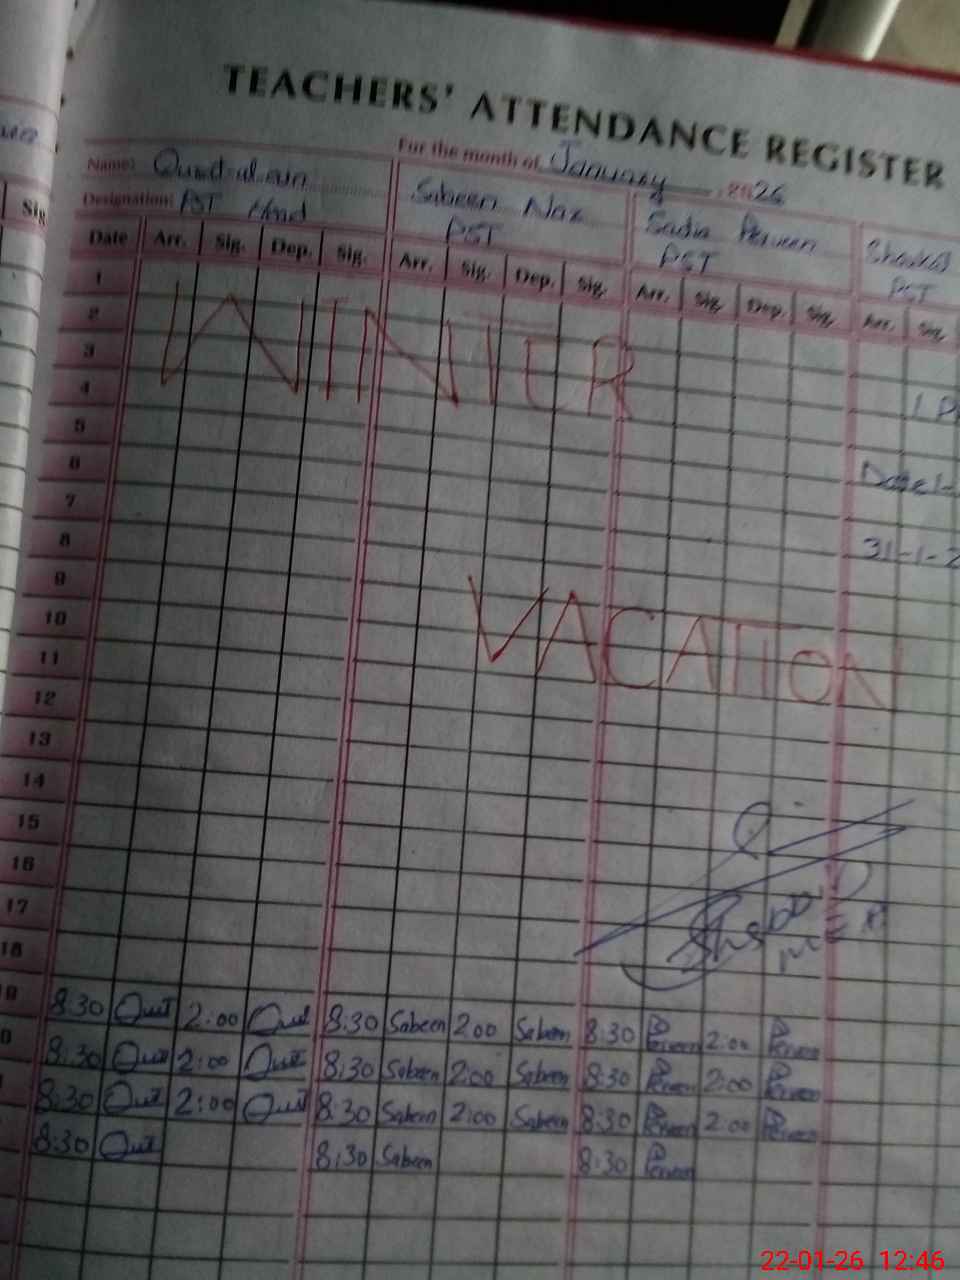 TEACHERS' ATTENDANCE REGISTER
For the month of January 2026
Name: Qurat-ul-ain Sabeen Naz Sadia Perveen
Designation: PST Head PST PST PST
Date Arr. Sig. Dep. Sig. Arr. Sig. Dep. Sig. Arr. Sig. Dep. Sig. Arr. Sig.
Sig
1
2
WINTER
3
4
5
6
7
8
31-1-2
9
10
VACATION
11
12
13
14
15
16
17
18
19 8:30 Qurt 2:00 Qurt 8:30 Sabeen 2:00 Sabeen 8:30 Perveen 2:00 Perveen
0 8:30 Qurt 2:00 Qurt 8:30 Sabeen 2:00 Sabeen 8:30 Perveen 2:00 Perveen
8:30 Qurt 2:00 Qurt 8:30 Sabeen 2:00 Sabeen 8:30 Perveen 2:00 Perveen
8:30 Qurt 8:30 Sabeen 8:30 Perveen
22-01-26 12:46